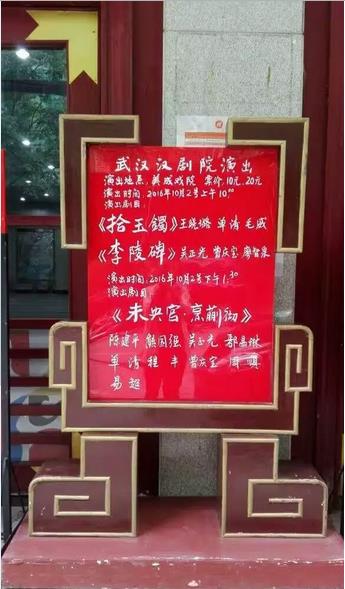 武汉汉剧院演出
演出地点:美成戏院 票价:10元、20元
演出时间:2016年10月2号上午10:00
演出剧目:
《拾玉镯》王晓璐 单清 毛威
《李陵碑》吴正光 曾庆宝 廖智泉
演出时间:2016年10月2号下午1:30
演出剧目:
《未央宫·烹蒯彻》
陈建平 熊国强 吴正光 郡
单清 程丰 曾庆宝 周
易超